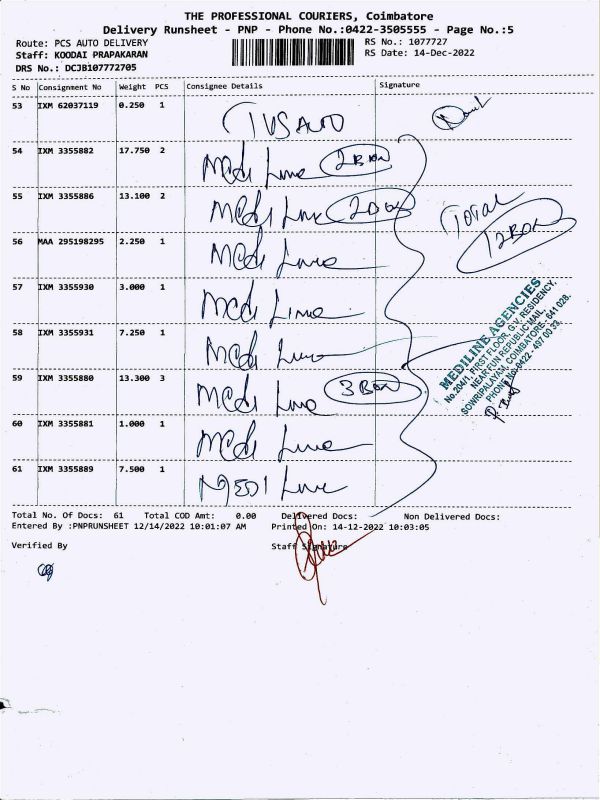 THE PROFESSIONAL COURIERS, Coimbatore
Delivery Runsheet - PNP - Phone No.:0422-3505555 - Page No.:5
Route: PCS AUTO DELIVERY
RS No.: 1077727
Staff: KOODAI PRAPAKARAN
RS Date: 14-Dec-2022
DRS No.: DCJB107772705
S No Consignment No Weight PCS Consignee Details Signature
53 IXM 62037119 0.250 1 TVS AUTO
54 IXM 3355882 17.750 2 Medi Line 2 Box
55 IXM 3355886 13.100 2 Medi Line 2 Box
Total
12 Box
56 MAA 295198295 2.250 1 Medi Line
57 IXM 3355930 3.000 1 Medi Line
58 IXM 3355931 7.250 1 Medi Line
59 IXM 3355880 13.300 3 Medi Line 3 Box
60 IXM 3355881 1.000 1 Medi Line
61 IXM 3355889 7.500 1 MEDI Line
MEDILINE AGENCIES
No.204/1, FIRST FLOOR, G.V. RESIDENCY,
NEAR FUN REPUBLIC MAIL,
SOWRIPALAYAM, COIMBATORE - 641 028.
PHONE No:0422 - 497 00 33.
Total No. Of Docs: 61 Total COD Amt: 0.00 Delivered Docs: Non Delivered Docs:
Entered By :PNPRUNSHEET 12/14/2022 10:01:07 AM Printed On: 14-12-2022 10:03:05
Verified By Staff Signature